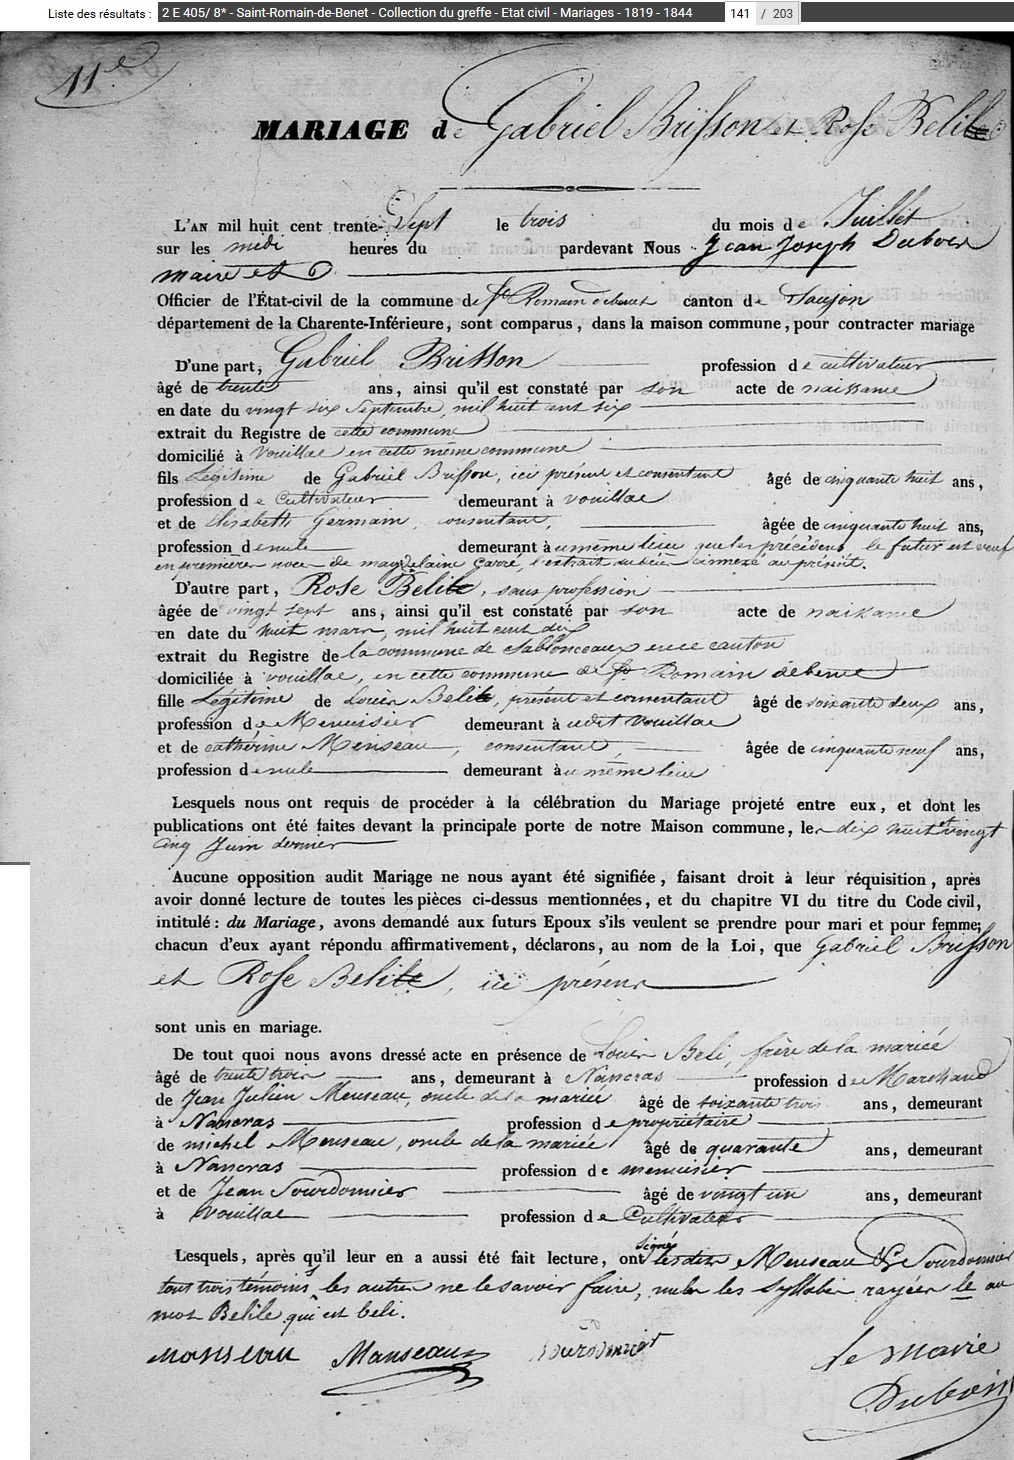 Liste des résultats : 2 E 405/ 8* - Saint-Romain-de-Benet - Collection du greffe - Etat civil - Mariages - 1819 - 1844 141 / 203
11e
MARIAGE de Gabriel Brisson et Rose Belile
L'AN mil huit cent trente-Sept le trois du mois de Juillet
sur les midi heures du pardevant Nous Jean Joseph Dubois
maire et O
Officier de l'État-civil de la commune de St Romain de benet canton de Saujon
département de la Charente-Inférieure, sont comparus, dans la maison commune, pour contracter mariage
D'une part, Gabriel Brisson profession de cultivateur
âgé de trente ans, ainsi qu'il est constaté par son acte de naissance
en date du vingt six Septembre, mil huit cent six
extrait du Registre de cette commune
domicilié à Vouillac en cette même commune
fils Légitime de Gabriel Brisson, ici présent et consentant âgé de cinquante huit ans,
profession de Cultivateur demeurant à vouillac
et de Elisabeth Germain, consentant, âgée de cinquante huit ans,
profession de nule demeurant à u même lieu que les précédens, le futur est veuf
en premieres noces de magdelaine Carré, l'extrait du décès annexé au présent.
D'autre part, Rose Belile, sans profession
âgée de vingt sept ans, ainsi qu'il est constaté par son acte de naissance
en date du huit mars, mil huit cent dix
extrait du Registre de la commune de Sablonceaux en ce canton
domiciliée à vouillac, en cette commune de St Romain de benet
fille Légitime de Louis Belile, présent et consentant âgé de soixante deux ans,
profession de Menuisier demeurant à udit vouillac
et de catherine Menseau, consentant, âgée de cinquante neuf ans,
profession de nule demeurant à u même lieu
Lesquels nous ont requis de procéder à la célébration du Mariage projeté entre eux, et dont les
publications ont été faites devant la principale porte de notre Maison commune, les dix huit et vingt
cinq Juin dernier
Aucune opposition audit Mariage ne nous ayant été signifiée, faisant droit à leur réquisition, après
avoir donné lecture de toutes les pièces ci-dessus mentionnées, et du chapitre VI du titre du Code civil,
intitulé : du Mariage, avons demandé aux futurs Epoux s'ils veulent se prendre pour mari et pour femme;
chacun d'eux ayant répondu affirmativement, déclarons, au nom de la Loi, que Gabriel Brisson
et Rose Belile, ici présens
sont unis en mariage.
De tout quoi nous avons dressé acte en présence de Louis Beli, frère de la mariée
âgé de trente trois ans, demeurant à Nancras profession de Marchand
de Jean Julien Menseau, oncle de la mariée âgé de soixante trois ans, demeurant
à Nancras profession de propriétaire
de michel Menseau, oncle de la mariée âgé de quarante ans, demeurant
à Nancras profession de menuisier
et de Jean Sourdonnier âgé de vingt un ans, demeurant
à vouillac profession de Cultivateur
Lesquels, après qu'il leur en a aussi été fait lecture, ont signés lesdits Menseau & Sourdonnier
tous trois témoins, les autres ne le savoir faire, nules les syllabes rayées le au
mot Belile qui est beli.
Manseau Manseau Sourdonnier le maire
Dubois